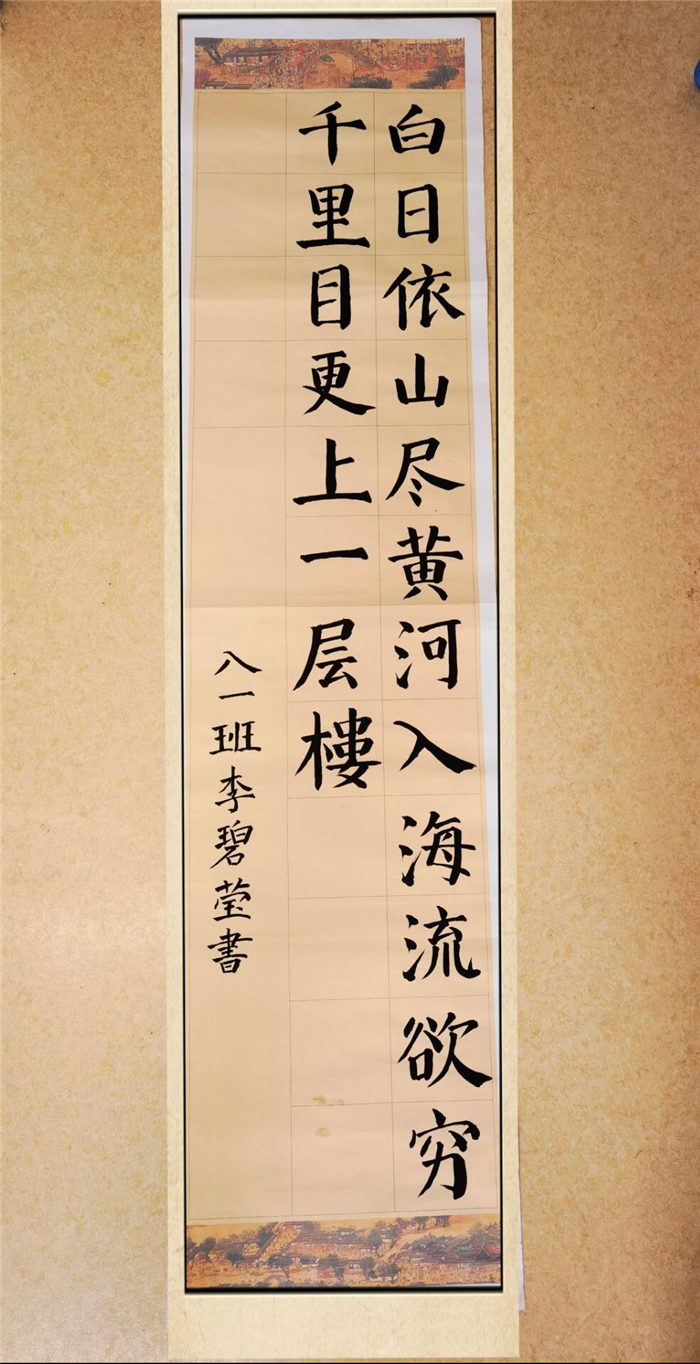 白日依山尽黄河入海流欲穷
千里目更上一层樓
八一班李碧莹書